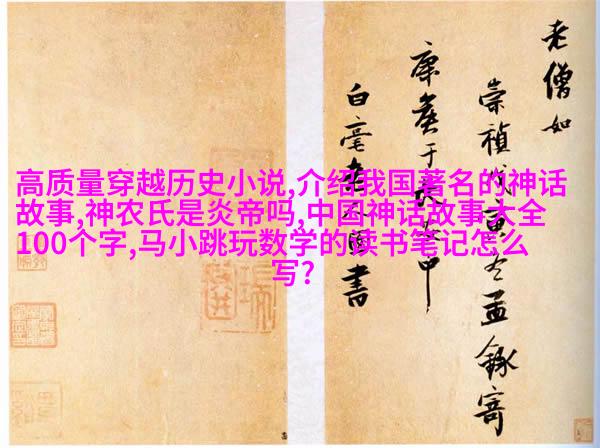 高质量穿越历史小说,介绍我国著名的神话
故事,神农氏是炎帝吗,中国神话故事大全
100个字,马小跳玩数学的读书笔记怎么
写?
老僧如
崇祯戊寅冬孟録寄
康侯于長安甲
白毫菴
書